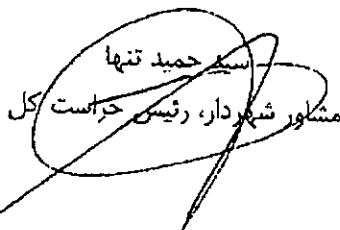 سید حمید تنها
مشاور شهردار، رئیس حراست کل